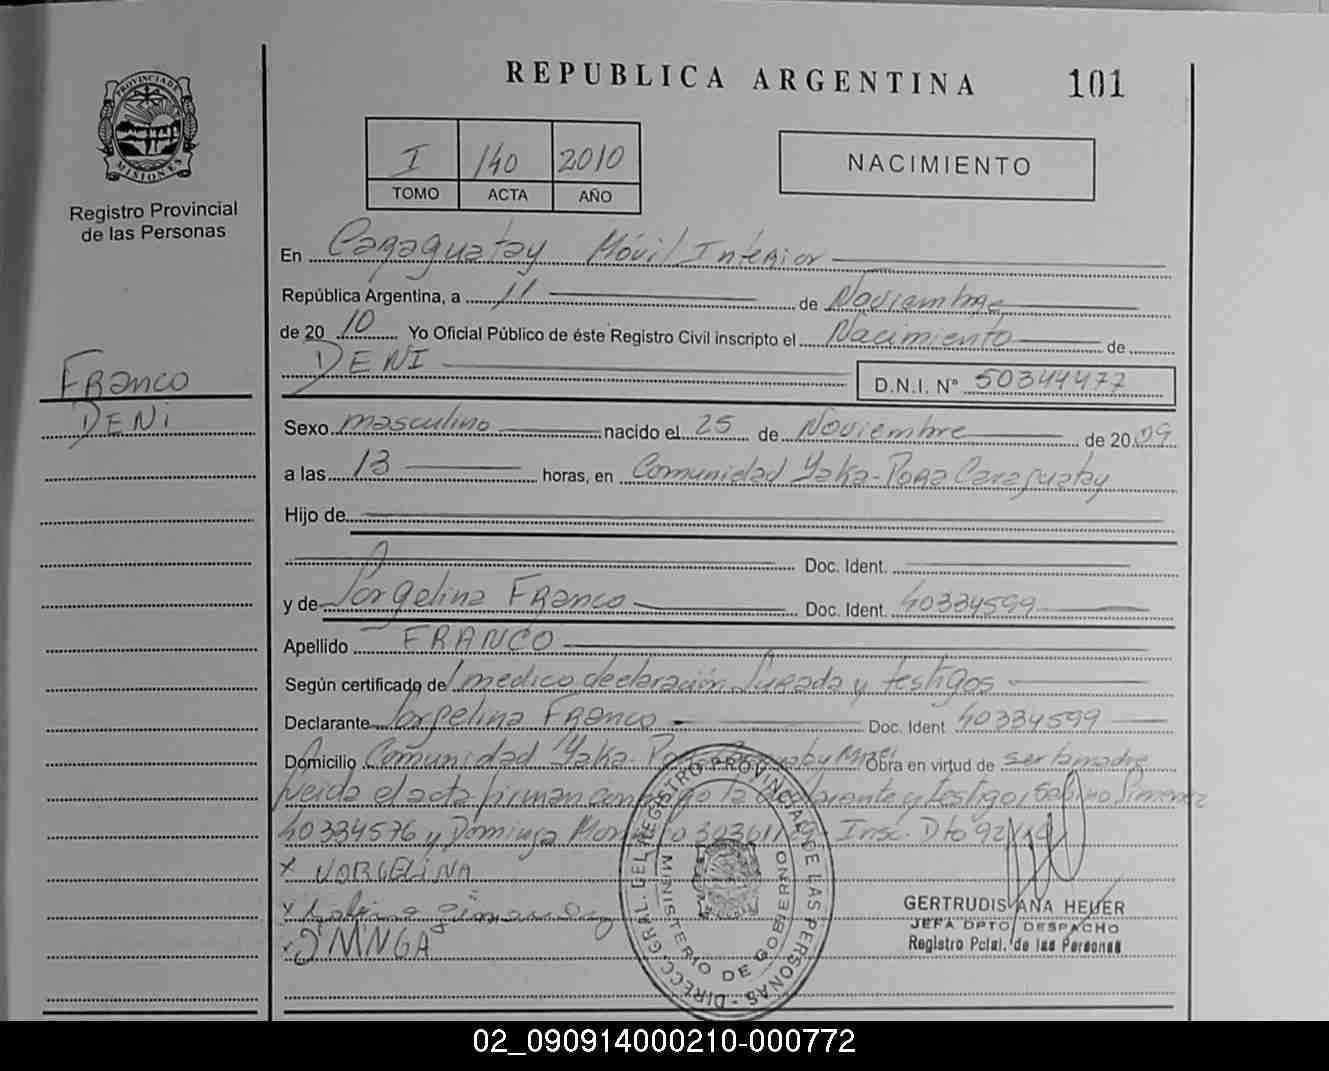 REPUBLICA ARGENTINA
101
PROVINCIA DE MISIONES
Registro Provincial
de las Personas
I 140 2010
TOMO ACTA AÑO
NACIMIENTO
En Caraguatay Móvil Interior
República Argentina, a 11 de Noviembre
de 2010 Yo Oficial Público de éste Registro Civil inscripto el Nacimiento de
DENI
D.N.I. N° 50344477
Franco
DENi
Sexo masculino nacido el 25 de Noviembre de 2009
a las 13 horas, en Comunidad Yaka-Pora Caraguatay
Hijo de
Doc. Ident.
y de Jorgelina Franco Doc. Ident. 40334599
Apellido FRANCO
Según certificado del medico declaración Jurada y testigos
Declarante Jorgelina Franco Doc. Ident 40334599
Domicilio Comunidad Yaka- Obra en virtud de ser la madre
leida el acta firman conmigo la declarante y testigos Sabino Gimenez
40334576 y Dominga Insc. Dto
x JORGELINA
x
x DMNGA
DIRECC. GRAL DEL REGISTRO PROVINCIAL DE LAS PERSONAS
MINISTERIO DE GOBIERNO
GERTRUDIS ANA HEUER
JEFA DPTO DESPACHO
Registro Pcial. de las Personas
02_090914000210-000772